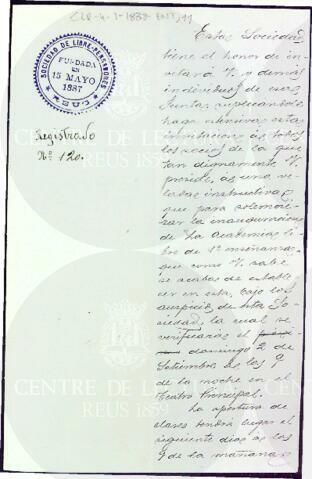 CLR-4-1-1888-
SOCIEDAD DE LIBRE-PENSADORES
FUNDADA
EN
15 MAYO
1887
REUS
Registrado
Nº 120.
Esta Sociedad
tiene el honor de in-
vitar á V. y demás
individuos de esa
Junta, suplicándole
haga estensiva esta
invitacion á todos
los socios de la que
tan dignamente V.
preside, á una ve-
lada instructiva
que para solemni-
zar la inauguracion
de "La Academia li-
bre de 1ª enseñanza,
que como V. sabe
se acaba de estable-
cer en esta, bajo los
auspicios de esta So-
ciedad, la cual se
verificará el
domingo 2 de
Setiembre á las 9
de la noche en el
Teatro Principal.
La apertura de
clases tendrá lugar el
siguiente dia á las
9 de la mañana
CENTRE DE LECTURA
REUS 1859